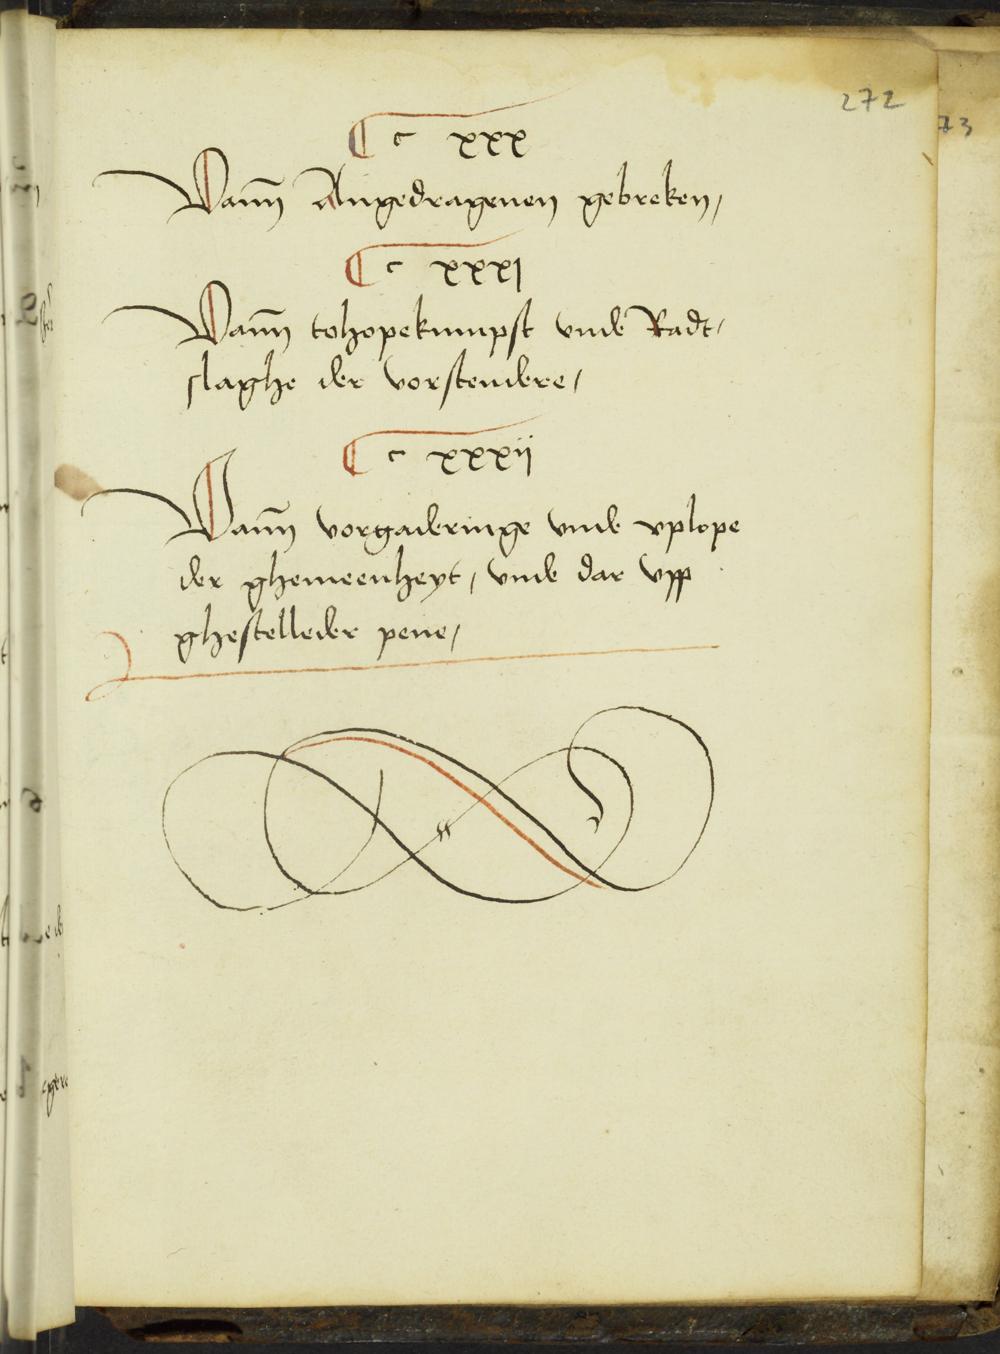 272
73
c xxx
Vann Angedragenen gebreken,
c xxxi
Vann tohopekumpst vnde Radt,
slaghe der vorstendere,
c xxxii
Vann vorgaderinge vnde vplope
der ghemeenheyt, vnde dar vpp
ghestelleder pene,